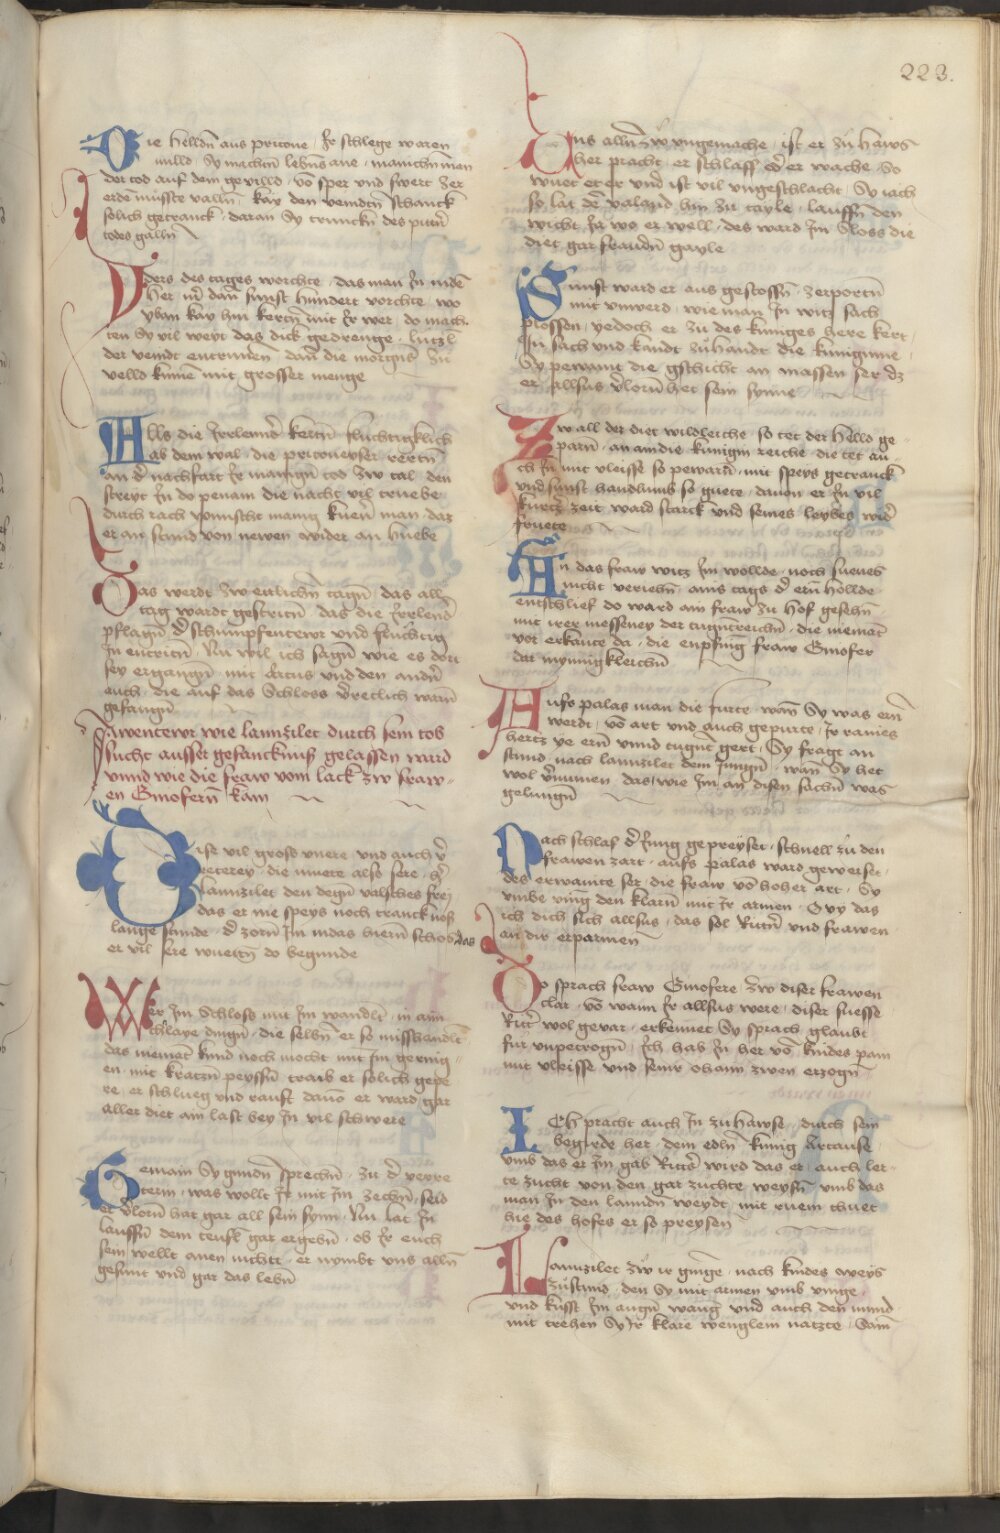 223.
Die helldn̄ aus pritone · Ir schlege waren
milld · Sy machtn̄ lebns̄ ane · manichn̄ man
der tod auf dem gevilld · vō sper und swert Zer
erdē müsste valln̄ · kay den veindtn̄ schanckt
solich getranck · daran Sy trunckn̄ des pittn̄
todes galln̄
Yders des tages worchte · das man In indē
her mer dan̄ sunst hundert vorchte wo
yban kay hin kertn̄ mit Ir wer · do mach
ten Sy vil weyt das dick gedrenge · lützl
der veindt entrunnen · dan̄ die morgns̄ zu
velld kumē mit grosser menge
Alls die Irrlennd kertn̄ fluchtigklich
ab dem wal · die pritoneyser rertn̄
an d nachfart Ir manign̄ tod Zw tal · den
streyt In do penam die nacht vil truebe
durch rach wunscht manig kuen̄ man · daz
er an stund von newen wider an huebe
Das werdt Zw etlichn̄ tagn̄ das all
tag wardt gestritn̄ das die Irrlend
pflagn̄ d schumpfentewr und fluchtig
In entritn̄ · Nu wil ich sagn̄ wie es dort
sey ergangn̄ · mit Artus und den andn̄
euch · die auf das Schloss vretlich warn̄
gefangn̄
Awentewr wie lannzilet durch sein tob
sucht ausser gefancknuss gelassen ward
unnd wie die fraw vom lack zw fraw
en Ginofern̄ kam
Dise vil gross unere und auch v
reterey · die muete also sere · hr̄
lannzilet den degn̄ valsches frey
das er nie speys noch tranck noss
lange stunde · d zorn̄ Im indas hiern̄ schoss das
er vil sere wuettn̄ do begunde
Wer Im Schloss mit Im wandlt · in ann
schlaye dingn̄ · die selbn̄ er so missehandlt
das niemāt kund noch mocht mit im gering
en · mit kratzn̄ peyssn̄ traib er solich gepe
re · er schlueg und rauft dauō er ward gar
aller diet am last bey In vil schwere
Gemain Sy gundn̄ sprechn̄ · zu d verre
terin · was wollt Ir mit Im zechn̄ · seid
er vlorn̄ hat gar all sein synn · Nu lat In
lauffn̄ dem teufl gar ergebn̄ · ob Ir euch
sein wellt anen nichtt · er nymbt uns alln̄
gesunt und gar das lebn̄
Uns alln̄ Zw ungemache · ist er zu haws
her pracht · er schlaff oder er wache · So
wuet et er und ist vil ungeschlacht · Sy iach
so lat den valand hin zu tayle · lauffn̄ den
wicht Ja wo er well · des ward Im Sloss die
diet gar frauden gayle
Sunst ward er aus gestossn̄ · zerportn̄
mit unwerd · wie man In witz sach
plossen · yedoch er zu des kuniges here kert
In sach und kandt zuhandt die kuniginne
Sy pewaint die gschicht an massen ser dz
er allsus vlorn̄ het sein synne
Zw all der diet wildleiche · so tet der helld ge
parn̄ · an amdie kunigin reiche · die tet au
ch In mit vleisse so pewarn̄ · mit speys getranck
und sunst handlung so guete · dauon er In vil
kurtz zeit ward starck und seines leybes wid
fruete
An das fraw witz Im wollde · noch suenes
nicht verichn̄ · ains tags d ern̄ hollde
entschlief do ward ain fraw zu hof gesehn̄
mit irer messeney der tugntreichn̄ · die niemāt
vor erkante da · die enpfing fraw Ginofer
dar mynnigkleichn̄
Aufs palas man die furte · wan̄ Sy was ern̄
werdt · vō art und auch gepurte · Ir raines
hertz ye ern̄ unnd tugnt gert · Sy fragt an
stund · nach lannzilet dem Iungn̄ · wan̄ Sy het
wol vnumen · das wie Im an disen sachn̄ was
gelungn̄
Nach schlaf d Iung gepreyset · schnell zu den
frawen zart · aufs palas ward geweyset ·
des erwainte ser · die fraw vō hoher art · Sy
umbe ving den klarn̄ mit Ir armen · O wy das
ich dich sich allsus · das sol Rittr̄ und frawen
an dir erparmen
Do sprach fraw Ginofere · Zw diser frawen
clar · vō wann Ir allsus were · diser suesse
Rittr̄ wol gevar · erkennet Sy sprach glaubt
für unpetrogn̄ · Ich hab In her vō kindes pain
mit vleisse und seinr ohaim zwen erzogn̄
ICh pracht auch In zu hawse · durch sein
begirde her · dem edln̄ kunig Artause ·
umb das er Im gab Ritters wird das er auch ler
te zucht von den gar zuchte weysn̄ · umb das
man In den lanndn̄ weydt · mit ruem thuet
hie des hofes er so preysen
Lannzilet zw ir ginge · nach kindes weys
zustund · den Sy mit armen umb vinge
und kusst Im augn̄ wang und auch den mund
mit trehen Sy Ir klare wenglein natzte · Sam̄